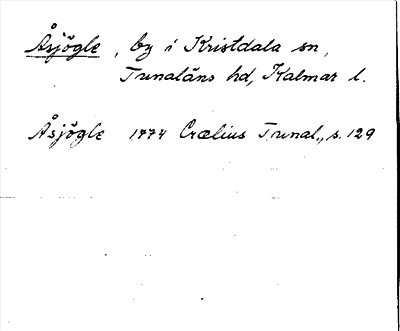 Åsjögle, by i Kristdala sn,
Tunaläns hd, Kalmar l.
Åsjögle 1774 Crælius Tunal., s. 129